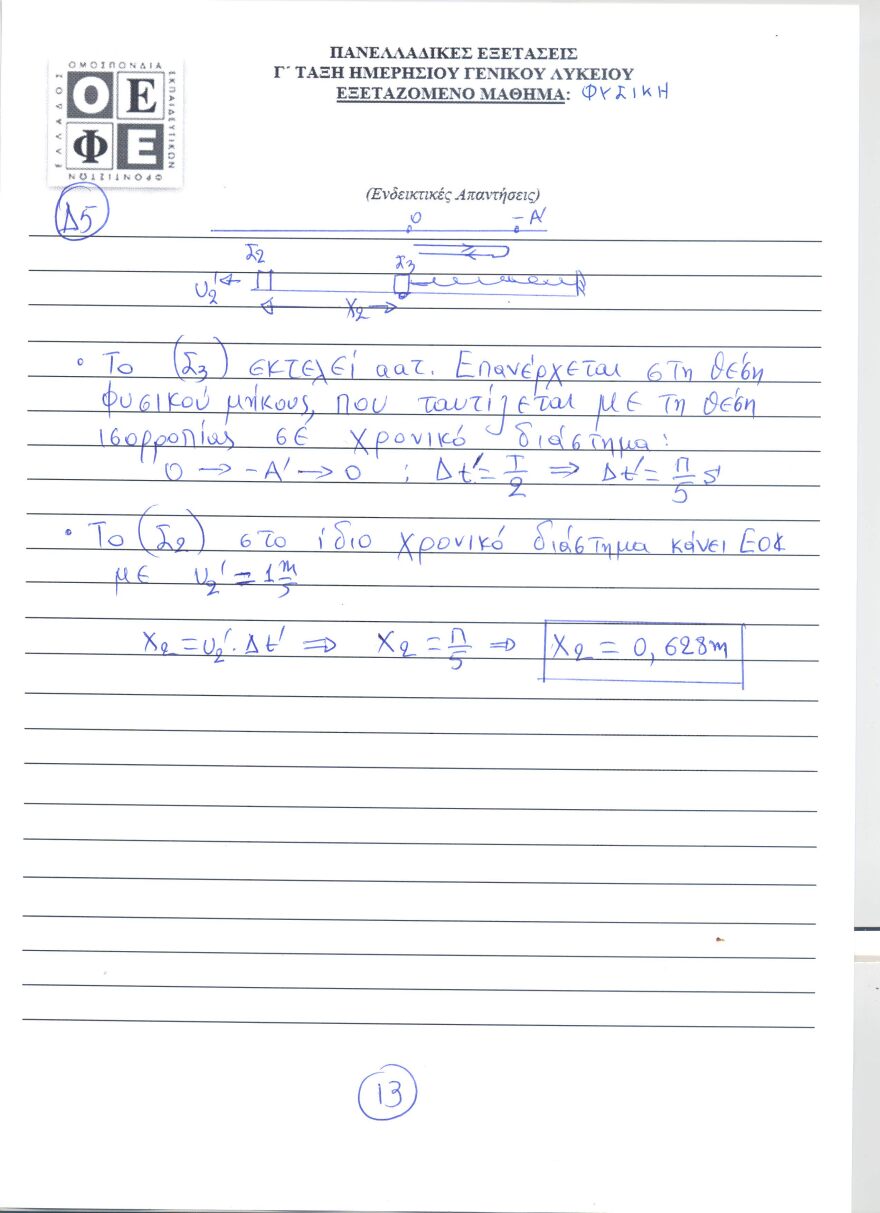 ΟΜΟΣΠΟΝΔΙΑ
ΕΚΠΑΙΔΕΥΤΙΚΩΝ
ΦΡΟΝΤΙΣΤΩΝ
ΕΛΛΑΔΟΣ
Ο Ε
Φ Ε
ΠΑΝΕΛΛΑΔΙΚΕΣ ΕΞΕΤΑΣΕΙΣ
Γ΄ ΤΑΞΗ ΗΜΕΡΗΣΙΟΥ ΓΕΝΙΚΟΥ ΛΥΚΕΙΟΥ
ΕΞΕΤΑΖΟΜΕΝΟ ΜΑΘΗΜΑ: ΦΥΣΙΚΗ
(Ενδεικτικές Απαντήσεις)
Δ5
Ο -Α'
Σ2 Σ3
υ2'
x2
• Το (Σ3) εκτελεί αατ. Επανέρχεται στη θέση
φυσικού μήκους, που ταυτίζεται με τη θέση
ισορροπίας σε χρονικό διάστημα:
Ο → -Α' → Ο : Δt' = T/2 ⇒ Δt' = π/5 s
• Το (Σ2) στο ίδιο χρονικό διάστημα κάνει ΕΟΚ
με υ2' = 1 m/s
x2 = υ2' · Δt' ⇒ x2 = π/5 ⇒ x2 = 0,628m
13